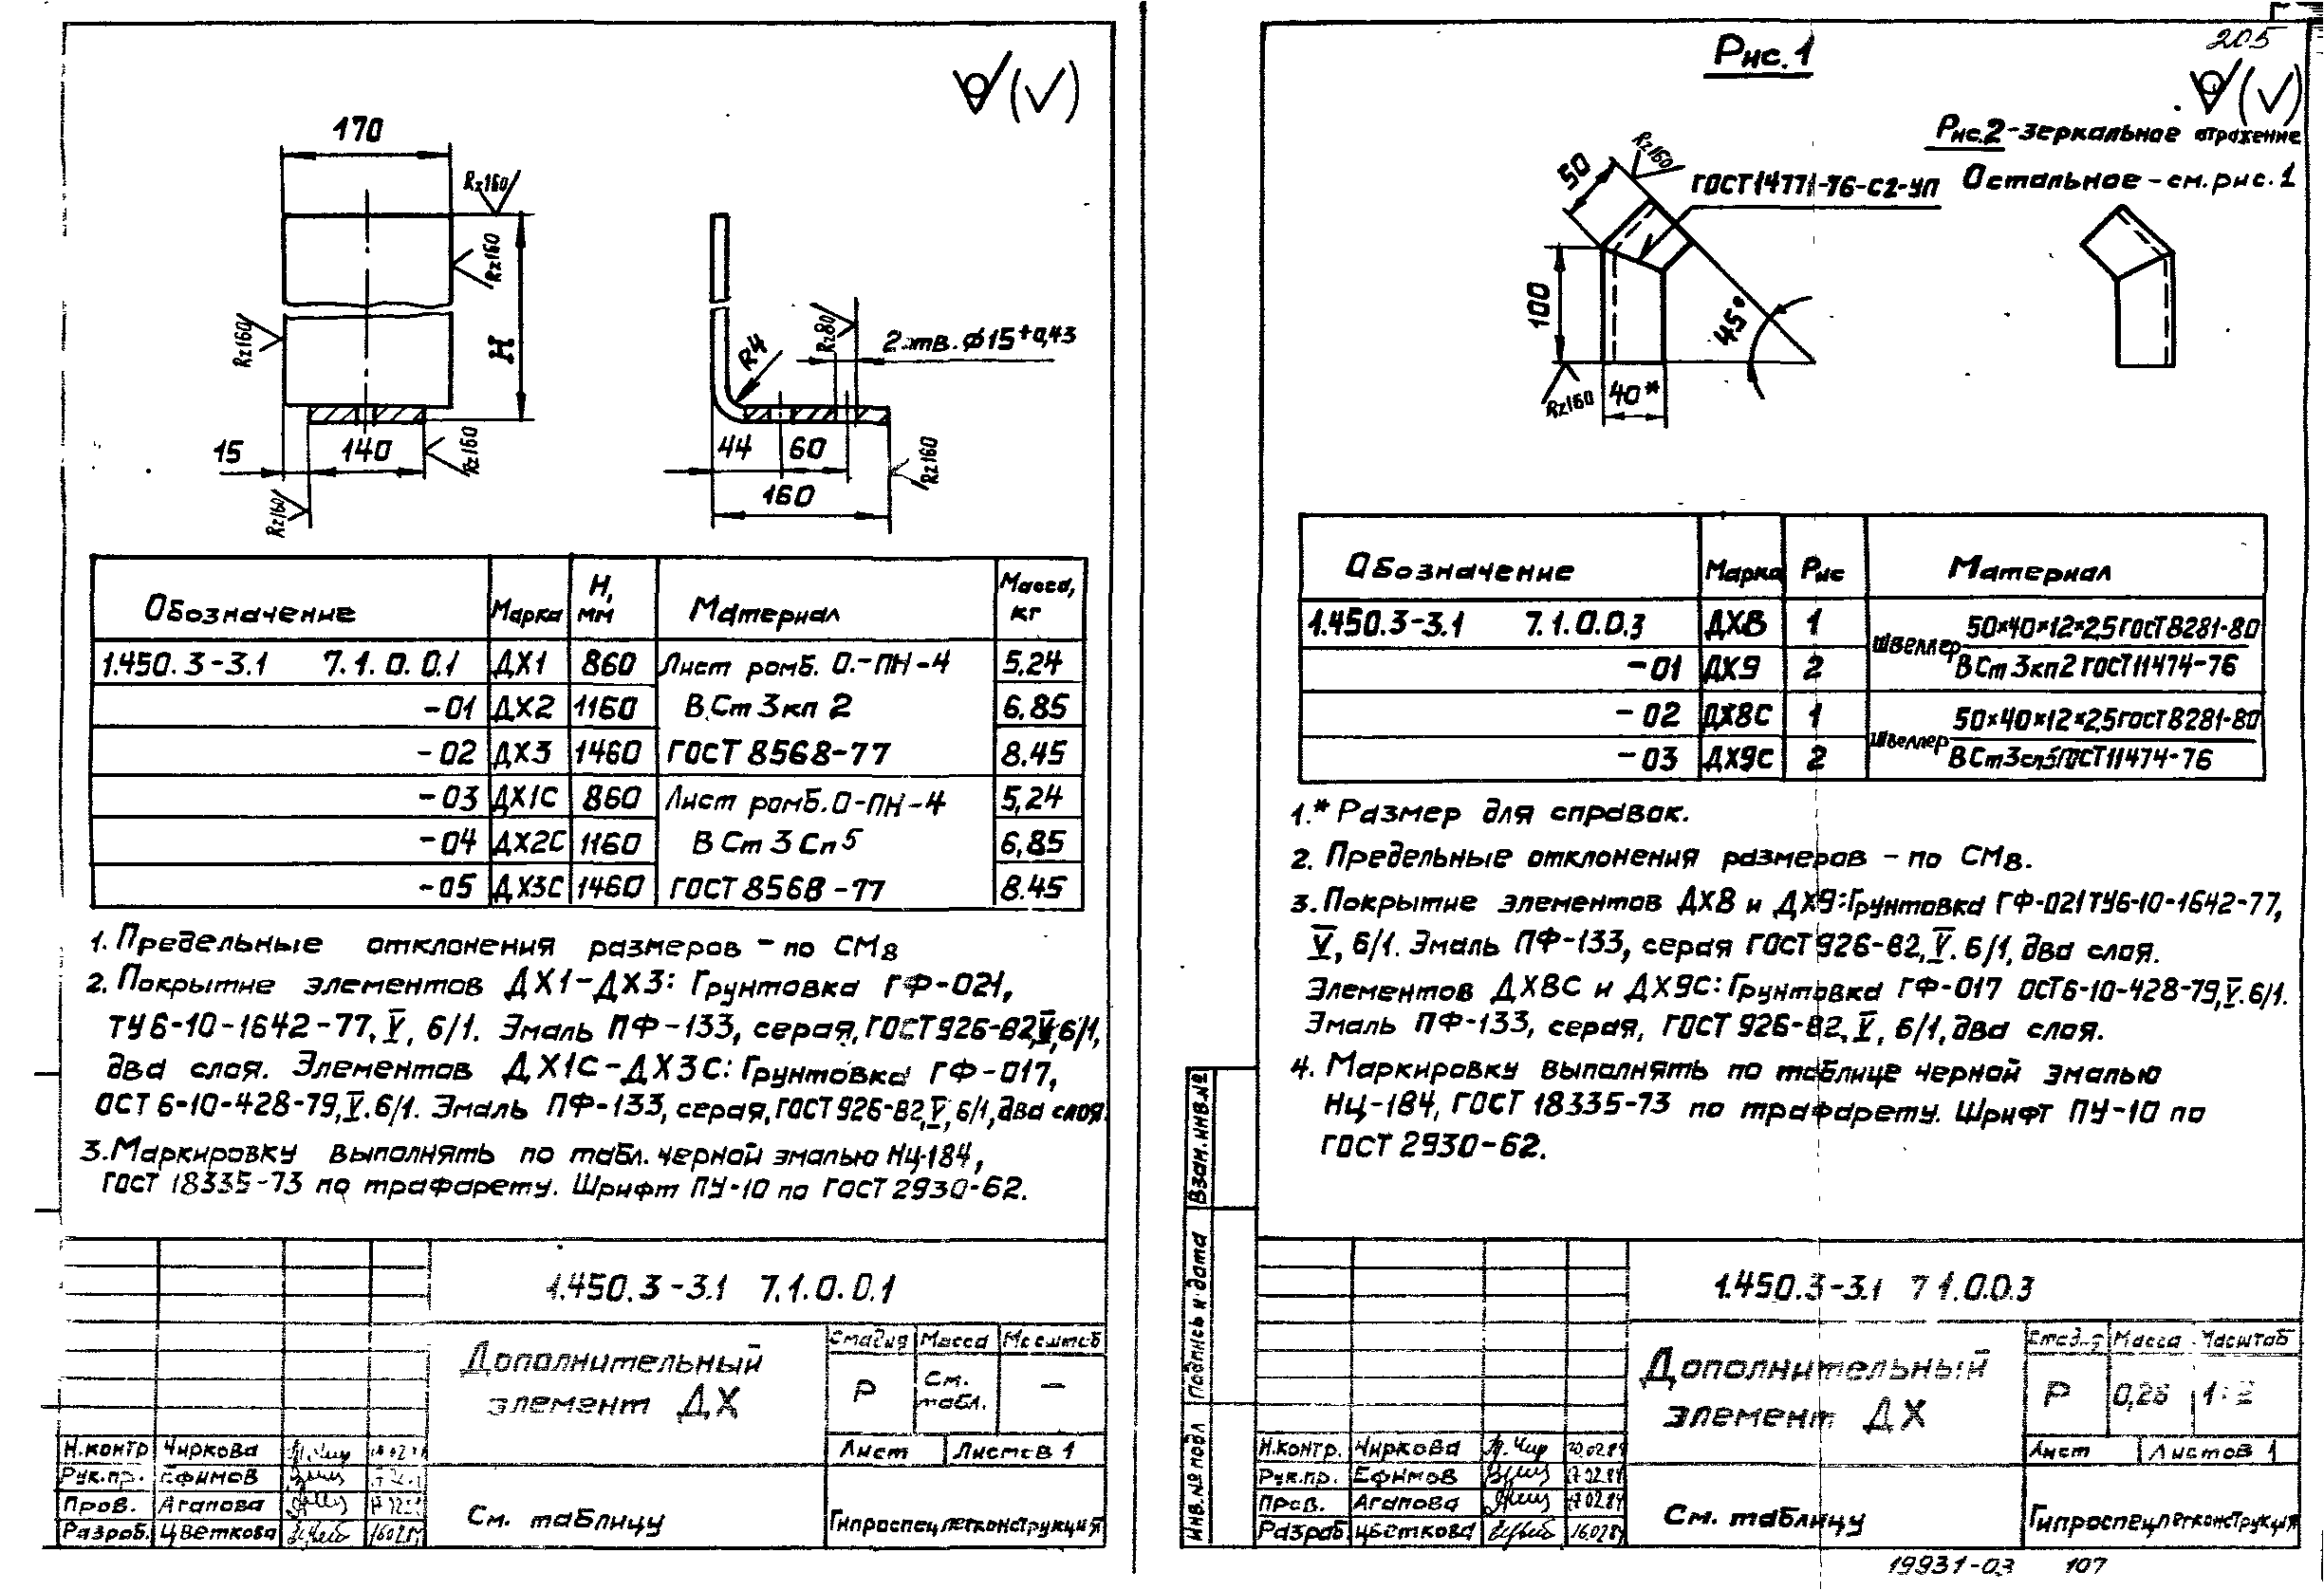 170
Rz160
Rz160
Rz160
H
15
140
Rz160
Rz160
R4
Rz80
2 отв. ϕ15+0,43
44
60
160
Rz160
Обозначение Марка H, мм Материал Масса, кг
1.450.3-3.1 7.1.0.0.1 ДХ1 860 Лист ромб. О.-ПН-4 5,24
-01 ДХ2 1160 ВСт3кп2 6,85
-02 ДХ3 1460 ГОСТ 8568-77 8.45
-03 ДХ1С 860 Лист ромб.О-ПН-4 5,24
-04 ДХ2С 1160 ВСт3Сп5 6,85
-05 ДХ3С 1460 ГОСТ 8568-77 8.45
1. Предельные отклонения размеров - по СМ8
2. Покрытие элементов ДХ1-ДХ3: Грунтовка ГФ-021,
ТУ6-10-1642-77, V, 6/1. Эмаль ПФ-133, серая, ГОСТ 926-82, V, 6/1,
два слоя. Элементов ДХ1С-ДХ3С: Грунтовка ГФ-017,
ОСТ 6-10-428-79, V. 6/1. Эмаль ПФ-133, серая, ГОСТ 926-82, V, 6/1, два слоя.
3. Маркировку выполнять по табл. черной эмалью НЦ-184,
ГОСТ 18335-73 по трафарету. Шрифт ПУ-10 по ГОСТ 2930-62.
1.450.3-3.1 7.1.0.0.1
Дополнительный
элемент ДХ
Стадия Масса Масштаб
Р См. табл. –
Лист Листов 1
Н.контр Чиркова
Рук.пр. Ефимов
Пров. Агапова
Разраб. Цветкова 160284
См. таблицу
Гипроспецлегконструкция
205
Рис.1
Рис.2-зеркальное отражение
Остальное - см. рис.1
50
Rz160
ГОСТ14771-76-С2-УП
100
45°
Rz160
40*
Обозначение Марка Рис Материал
1.450.3-3.1 7.1.0.0.3 ДХ8 1 Швеллер 50×40×12×2,5 ГОСТ 8281-80
-01 ДХ9 2 ВСт3кп2 ГОСТ 11474-76
-02 ДХ8С 1 Швеллер 50×40×12×2,5 ГОСТ 8281-80
-03 ДХ9С 2 ВСт3сп5 ГОСТ 11474-76
1.* Размер для справок.
2. Предельные отклонения размеров - по СМ8.
3. Покрытие элементов ДХ8 и ДХ9: Грунтовка ГФ-021 ТУ6-10-1642-77,
V, 6/1. Эмаль ПФ-133, серая ГОСТ 926-82, V. 6/1, два слоя.
Элементов ДХ8С и ДХ9С: Грунтовка ГФ-017 ОСТ6-10-428-79, V. 6/1.
Эмаль ПФ-133, серая, ГОСТ 926-82, V, 6/1, два слоя.
4. Маркировку выполнять по таблице черной эмалью
НЦ-184, ГОСТ 18335-73 по трафарету. Шрифт ПУ-10 по
ГОСТ 2930-62.
Взам.инв.№
Подпись и дата
Инв.№ подл
1.450.3-3.1 7 1.0.0.3
Дополнительный
элемент ДХ
Масса Масштаб
Р 0,26
Лист Листов 1
Н.контр. Чиркова 20.02.84
Рук.пр. Ефимов 17.02.84
Пров. Агапова 17.02.84
Разраб Цветкова 16.02.84
См. таблицу
Гипроспецлегконструкция
19931-03 107